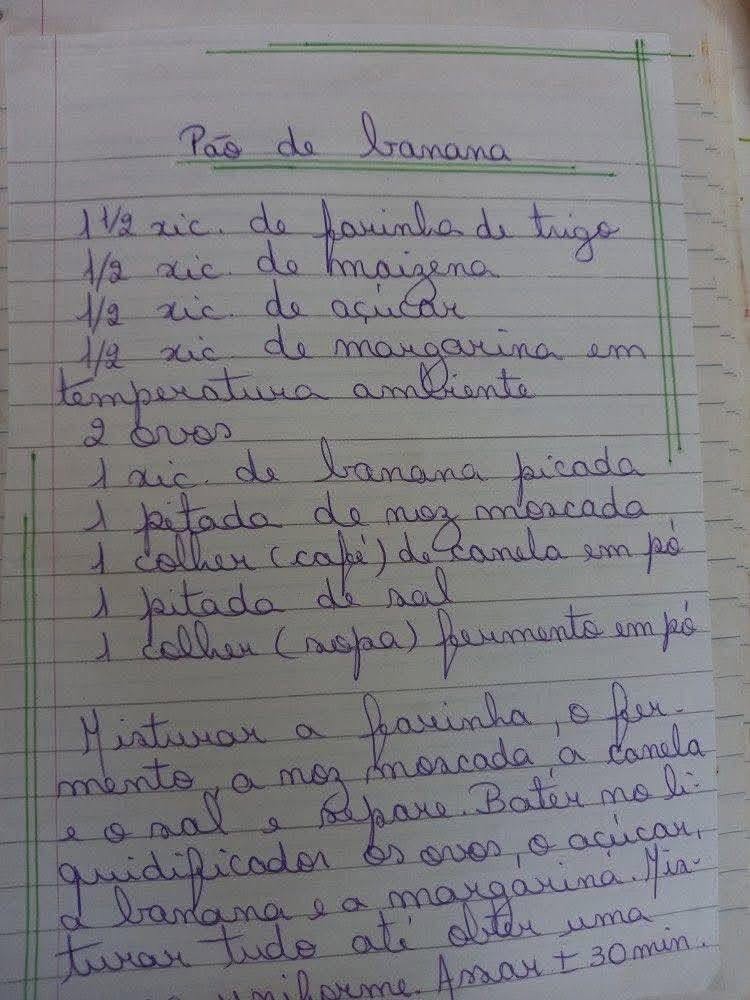 Pão de banana
1 1/2 xic. de farinha de trigo
1/2 xic. de maizena
1/2 xic. de açúcar
1/2 xic. de margarina em
temperatura ambiente
2 ovos
1 xic. de banana picada
1 pitada de noz moscada
1 colher (café) de canela em pó
1 pitada de sal
1 colher (sopa) fermento em pó
Misturar a farinha, o fer-
mento, a noz moscada a canela
e o sal e separe. Batér no li-
quidificador os ovos, o açúcar,
a banana e a margarina. Mis-
turar tudo até obter uma
uniforme. Assar ± 30 min.